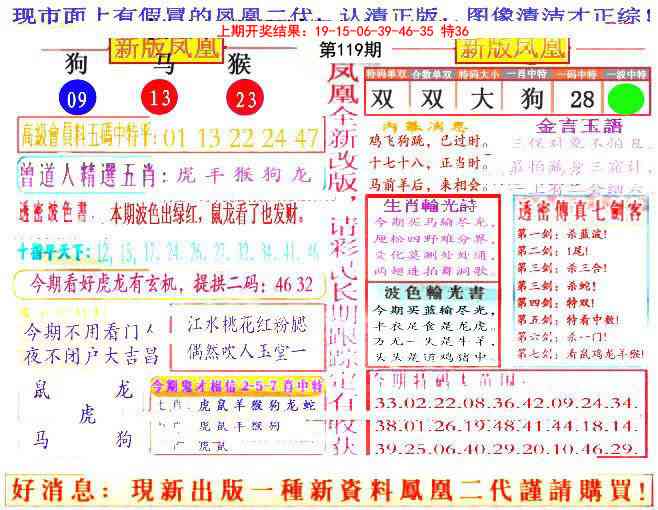 现市面上有假冒的凤凰二代，认清正版，图像清洁才正综！
上期开奖结果：19-15-06-39-46-35 特36
新版凤凰
第119期
新版凤凰
狗 马 猴
09 13 23
高級會員料五碼中特平：01 13 22 24 47
曾道人精選五肖：虎羊猴狗龙
透密波色書 本期波色出绿红，鼠龙看了也发财。
十指平天下：12, 15, 17, 24, 26, 27, 32, 34, 41, 46
今期看好虎龙有玄机，提拱二码：46 32
今期不用看门人
夜不闭户大吉昌
江水桃花红粉腮
偶然吹人玉堂一
鼠 龙
虎
马 狗
今期鬼才相信2-5-7肖中特
七肖：虎鼠羊猴狗龙蛇
虎鼠羊猴狗
虎鼠
凤凰全新改版，请彩民长期跟踪定有收获
特码单双 合数单双 特码大小 一肖中特 一码中特 一波中特
双 双 大 狗 28
内幕消息
鸡飞狗跳，已过时。
十七十八，正当时。
马前羊后，来相会。
金言玉語
生肖輸光詩
今期买马输尽光，
波色輸光書
今期买蓝输尽光，
透密傳真七劍客
第一剑：杀蓝波！
第二剑：1尾！
第三剑：杀三合！
第三剑：杀蛇！
第四剑：特双！
第五剑：特看中数！
第六剑：杀一门！
第七剑：看鼠鸡龙羊猴！
今期特码大范围：
33.02.22.08.36.42.09.24.34.
38.01.26.19.48.41.44.18.14.
39.25.06.40.29.20.10.46.29.
好消息：現新出版一種新資料鳳凰二代謹請購買！